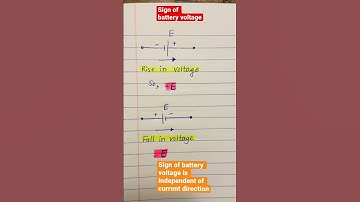 Sign of
battery voltage
E
- +
Rise in Voltage
So, +E
E
+ -
Fall in voltage
-E
Sign of battery
voltage is
independent of
current direction